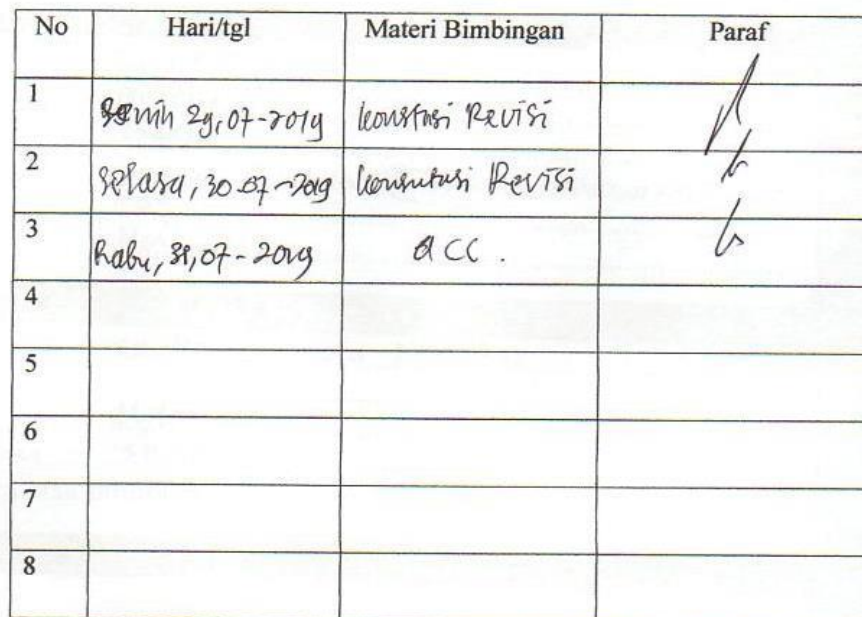 No Hari/tgl Materi Bimbingan Paraf
1 Senin 29, 07-2019 konstusi Revisi
2 selasa, 30-07-2019 konsutusi Revisi
3 Rabu, 31, 07-2019 ACC.
4
5
6
7
8